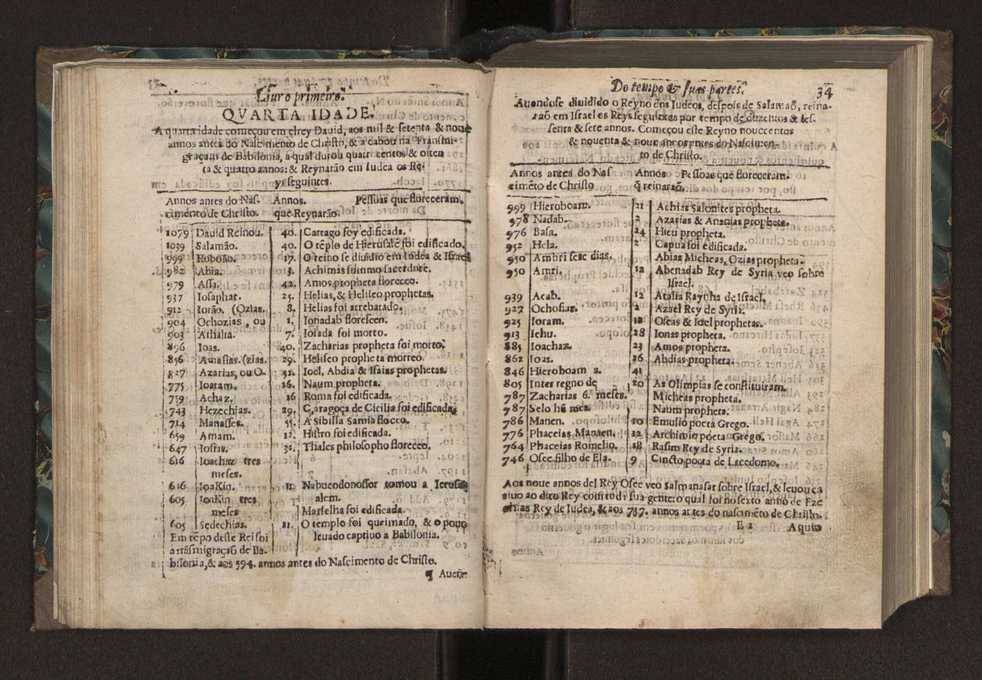 Liuro primeiro.
QVARTA IDADE.
A quarta idade começou em elrey Dauid, aos mil & setenta & noue
annos antes do Nascimento de Christo, & acabou na Transmi-
graçam de Babilonia, a qual durou quatrocentos & oiten
ta & quatro annos: & Reynarão em Iudea os Re-
ys seguintes.
Annos antes do Nas- Annos. Pessoas que floreceram.
cimento de Christo. que Reynarão.
1079 Dauid Reinou. 40. Cartago foy edificada.
1039 Salamão. 40. O tẽplo de Hierusalẽ foi edificado.
999 Roboão. 17. O reino se diuidio em Iudea & Israel
982 Abia. 3. Achimas summo sacerdote.
979 Assa. 42. Amos propheta florecco.
937 Iosaphat. 25. Helias, & Heliseo prophetas.
912 Iorão. (Ozias. 8. Helias foi arrebatado.
904 Ochozias, ou 1. Ionadab florescen.
903 Athalia. 7. Ioiada foi morto.
896 Ioas. 40. Zacharias propheta foi morto.
856 Amasias. (zias. 29. Heliseo propheta morreo.
827 Azarias, ou O- 52. Ioel, Abdia & Isaias prophetas.
775 Ioatam. 16. Naum propheta.
759 Achaz. 16 Roma foi edificada.
743 Hezechias. 29. Caragoça de Cicilia foi edificada
714 Manasses. 55. A Sibilla Samia florco.
659 Amam. 12. Histro foi edificada.
647 Iosias. 31. Thales philosopho florecco.
616 Ioachaz tres
meses.
616 Ioakin. 11. Nabucodonosor tomou a Ierusa
605 Ioakin tres alem.
meses Marselha foi edificada.
605 Sedechias. 11. O templo foi queimado, & o pouo
Em tẽpo deste Rei foi leuado captiuo a Babilonia.
a trãsmigraçaõ de Ba-
bilonia, & aos 594. annos antes do Nascimento de Christo.
¶ Auen-
Do tempo & suas partes. 34
Auendose diuidido o Reyno dos Iudeos, despois de Salamaõ, reina-
raõ em Israel es Reys seguintes por tempo de duzentos & ses-
senta & sete annos. Começou este Reyno nouecentos
& nouenta & noue annos antes do Nascimen-
to de Christo.
Annos antes do Nas- Annos Pessoas que floreceram.
cimẽto de Christo q̃ reinarão.
999 Hieroboam. 21 Achias Salonites propheta.
978 Nadab. 2 Azarias & Ananias prophetas.
976 Basa. 24 Hieu propheta.
952 Hela. 2 Capua foi edificada.
950 Ambri sete dias. Abias Micheas, Ozias propheta.
950 Amri. 12 Abenadab Rey de Syria veo sobre
Israel.
939 Acab. 12 Atalia Raynha de Israel.
927 Ochosias. 2 Azael Rey de Syria.
925 Ioram. 12 Oseas & Idel prophetas.
913 Iehu. 28 Ionas propheta.
885 Ioachaz. 23 Amos propheta.
862 Ioas. 16 Abdias propheta.
846 Hieroboam 2. 41
805 Inter regno de 20 As Olimpias se constituiram.
787 Zacharias 6. meses. Micheas propheta.
787 Selo hũ mes. Naum propheta.
786 Manen. 10 Emulio poeta Grego.
776 Phaceias Manaen. 12 Archinio poeta Grego.
764 Phaceias Romelio. 18 Rasim Rey de Syria.
746 Osee filho de Ela. 9 Cincto poeta de Lacedomo.
Aos noue annos del Rey Osee veo Salmanasar sobre Israel, & leuou ca
tiuo ao dito Rey com toda sua gente: o qual foi no sexto anno de Eze
chias Rey de Iudea, & aos 737. annos antes do nascimẽto de Christo.
E 2 Aquio